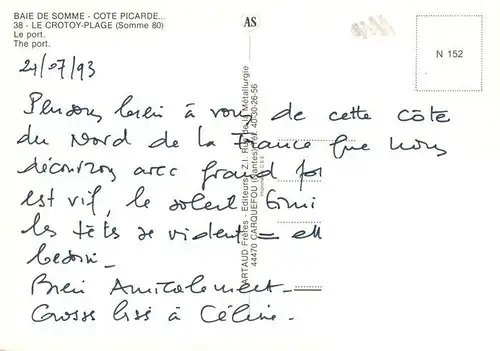 BAIE DE SOMME - COTE PICARDE...
38 - LE CROTOY-PLAGE (Somme 80)
Le port.
The port.
AS
N 152
21/07/93
Pensons bien à vous de cette côte
du Nord de la France que nous
découvrons avec grand
est vif, le soleil
les têtes se vident = en
besoin -
Bien Amicalement -
Grosses biss à Céline -
ARTAUD Frères - Editeurs - Z.I. Rue de la Métallurgie
44470 CARQUEFOU (Nantes) Tél. 40-30-26-56